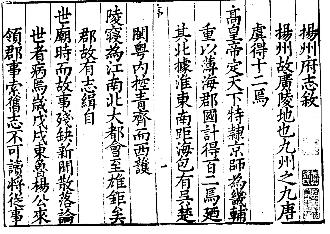 揚州府志敘
揚州故廣陵地也九州之九唐
虞得十二焉
高皇帝定天下特隸京師為畿輔
重以薄海郡國計得百二焉廼
其北據淮東南距海包有真楚
閩粵內控青齊而西護
陵寢為江南北大都會至雄鉅矣
郡故有志緝自
世廟時而故事殘缺新聞散落論
世者病焉歲戊戌東魯楊公來
領郡事索舊志不可讀將從事